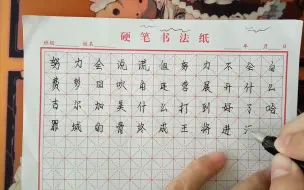 硬笔书法纸
班级 姓名 年 月 日
努力会说谎但努力不会白
费梦回吹角连营展开什么
古尔加美什么打到好了哈
罪城的骨终成王将进